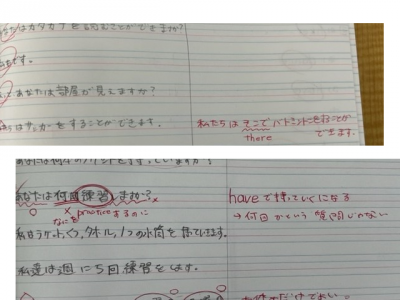 あなたはカタカナを読むことができますか?
です。
あなたは部屋が見えますか?
はサッカーをすることができます。
私たちはそこでバドミントンをすることが
できます。
there
あなたは何回練習しますか?
practiceするのに
なにを
haveで持っていくになる
→何回かという質問じゃない
私はラケット、くつ、タオル、1つの水筒を持っています。
私達は週に5回練習をします。